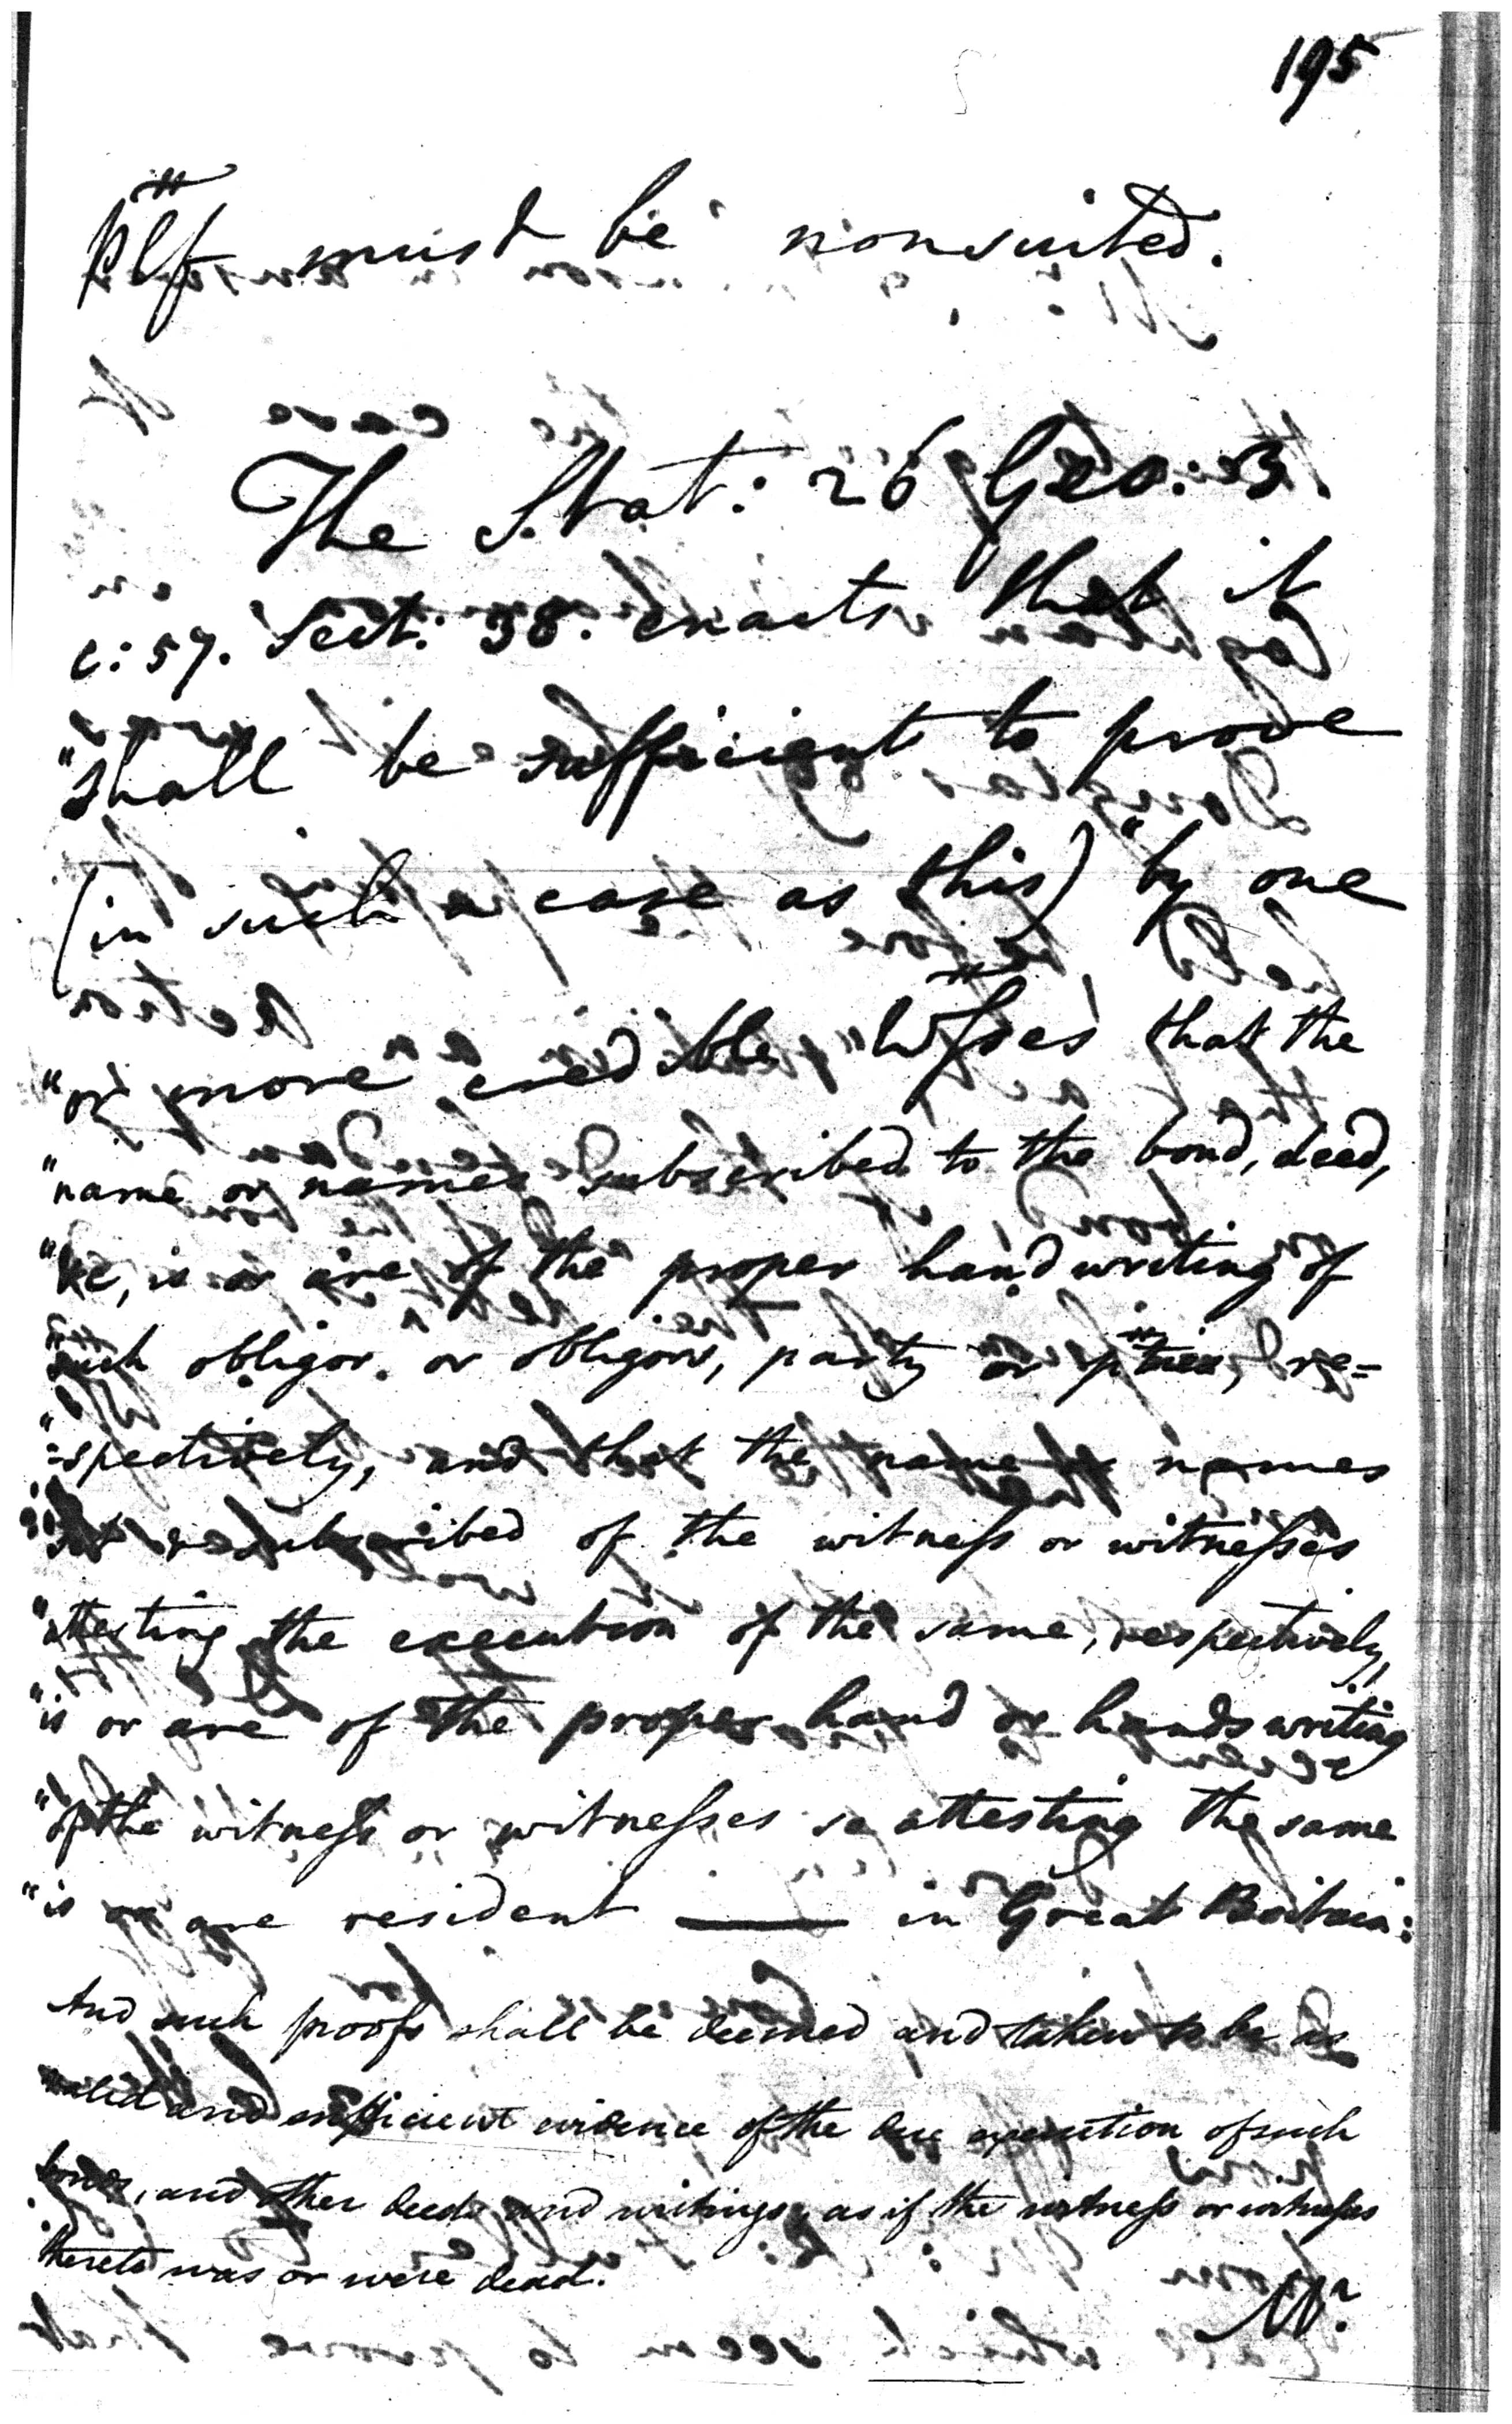 195
plf must be nonsuited.
The Stat: 26 Geo: 3.
c: 57. Sect: 38. enacts that it
"shall be sufficient to prove
(in such a case as this) "by one
"or more credible "Wsses that the
"name or names subscribed to the bond, deed,
"&c, is or are of the proper hand writing of
"such obligor. or obligors, party or pties, re=
"=spectively, and that the name or names
"set & subscribed of the witness or witnesses
"attesting the execution of the same, respectively,
"is or are of the proper hand or hands writing
"of the witness or witnesses so attesting the same
"is or are resident —— in Great Britain:
And such proofs shall be deemed and taken to be as
valid and sufficient evidence of the due execution of such
bonds, and other deeds and writings, as if the witness or witnesses
thereto was or were dead.
Mr.